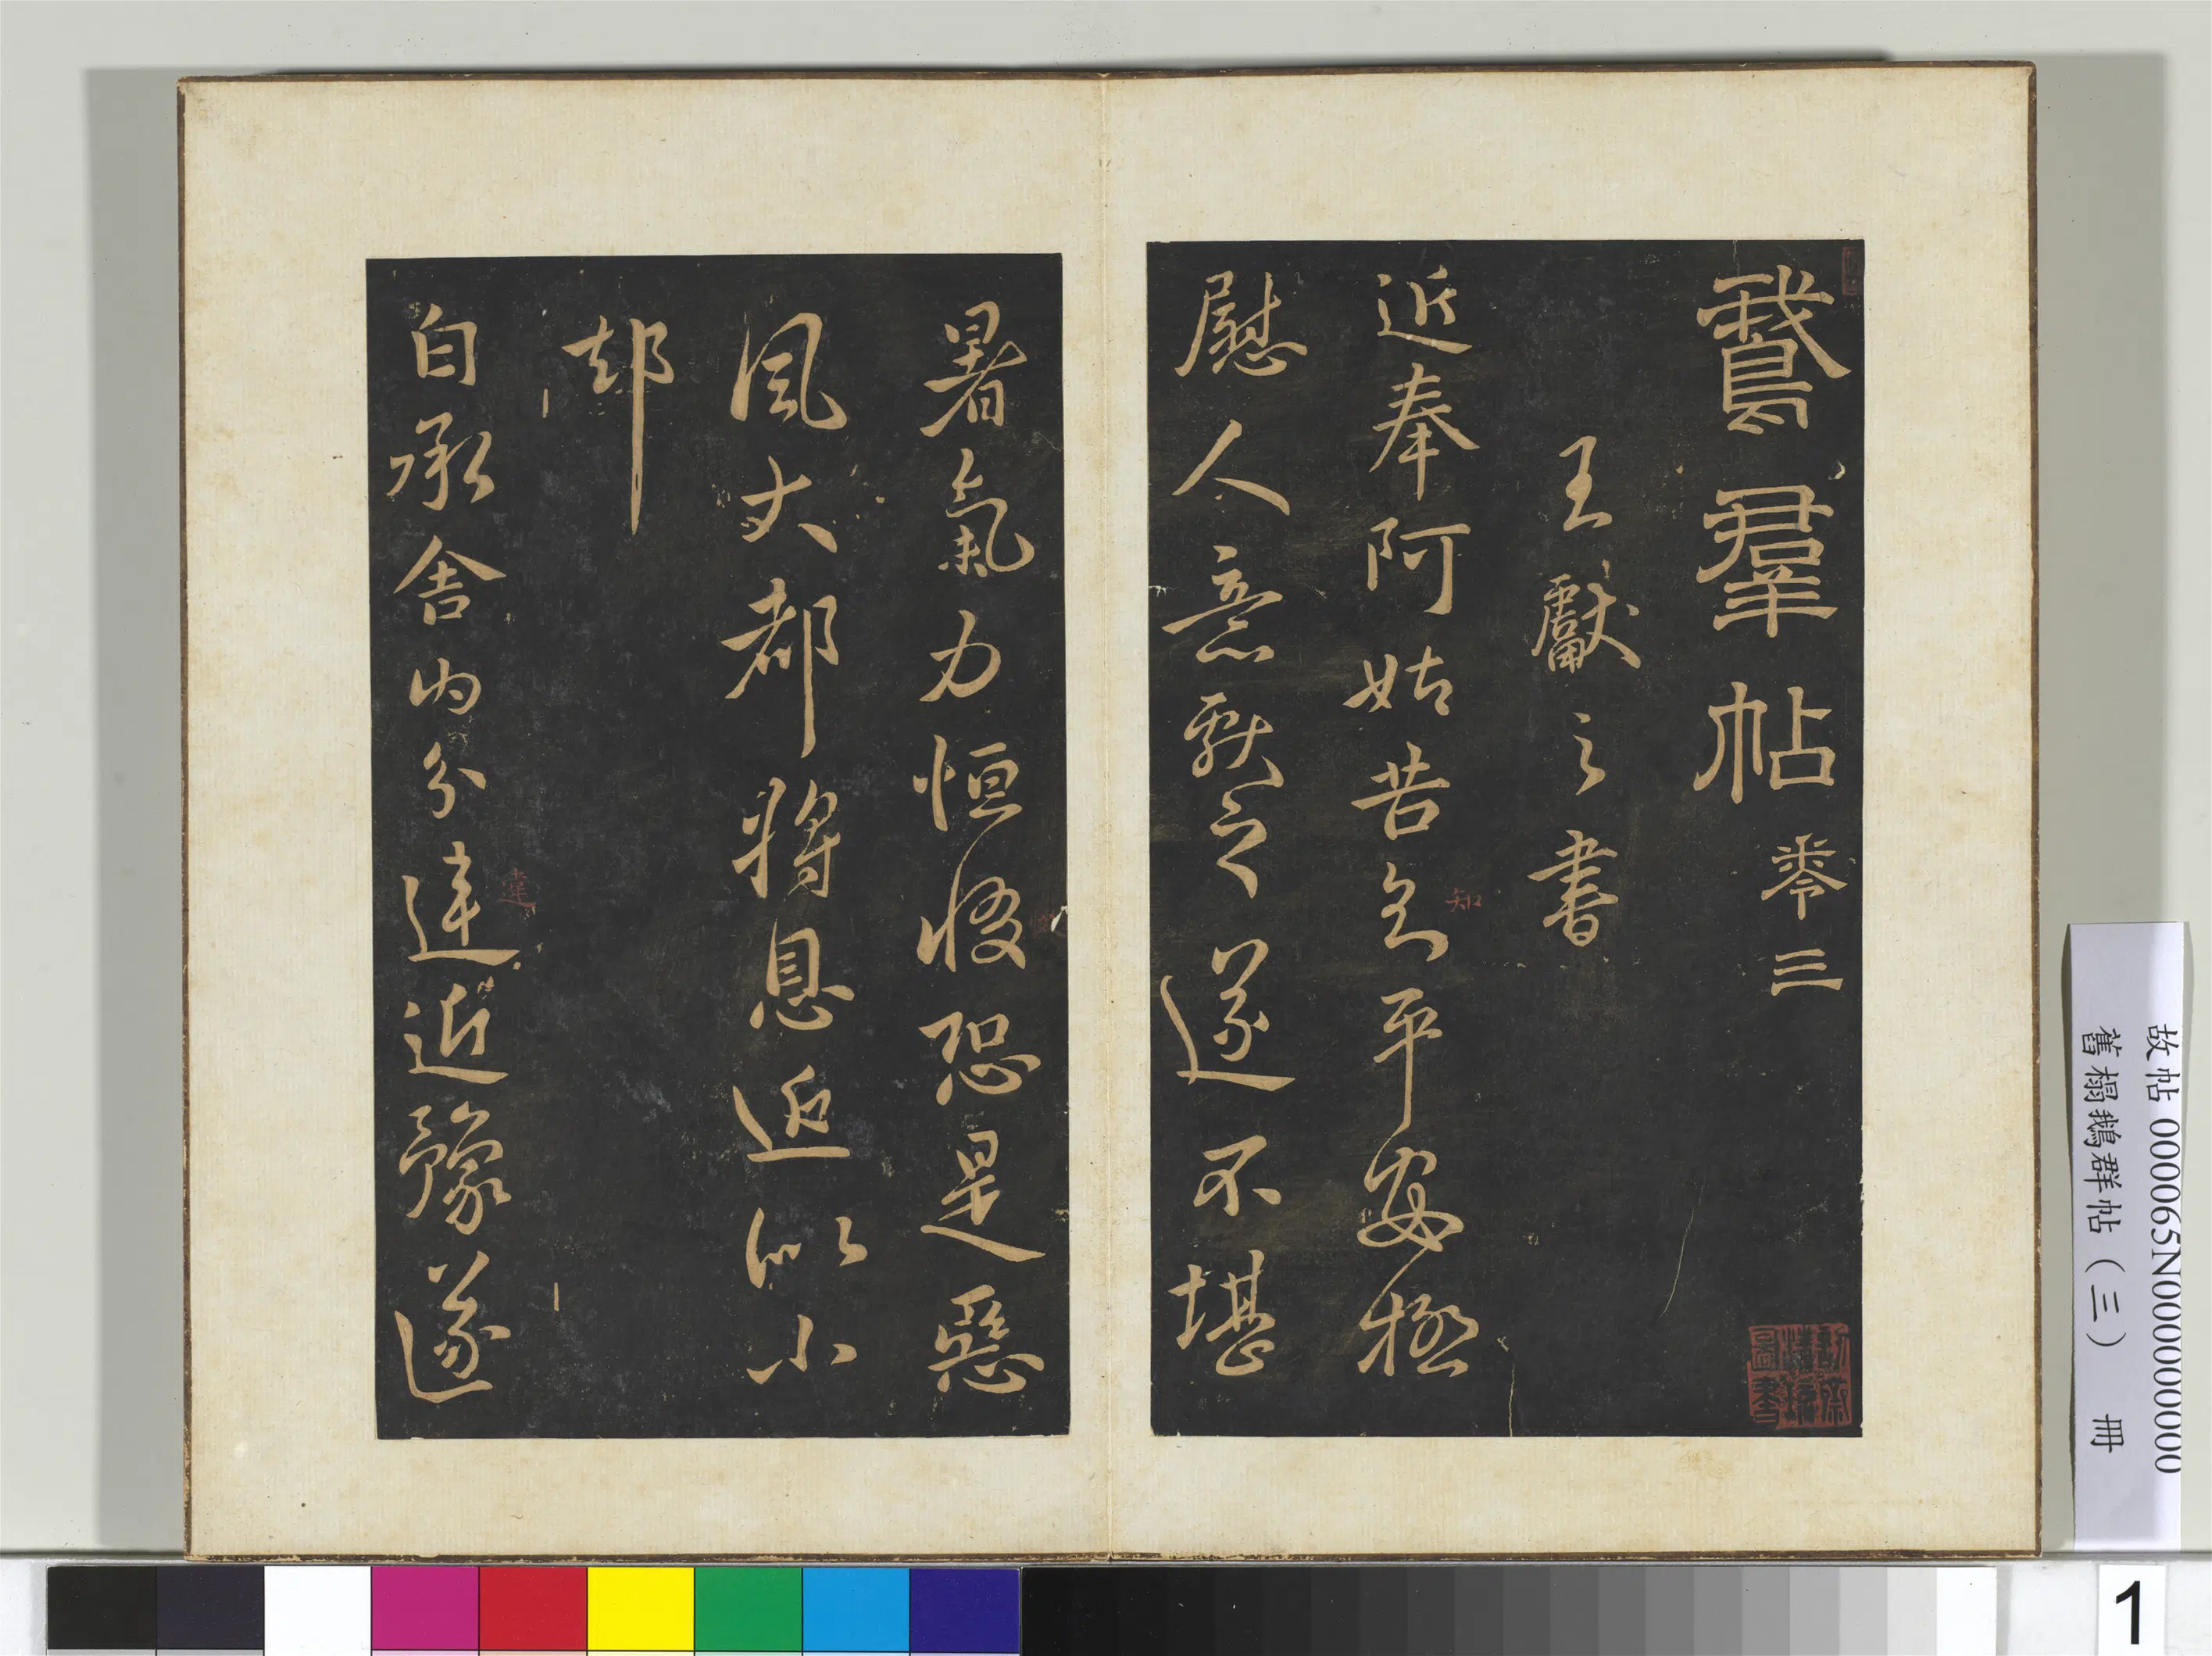 鵞羣帖 卷三
王獻之書
近奉阿姑告知平安極
慰人意獻之遂不堪
暑氣力恒惙恐是惡
風大都將息近似小
却
白承舍內分違近豫遂
知
違
故帖 000065N000000000
舊榻鵝群帖(三) 冊
1